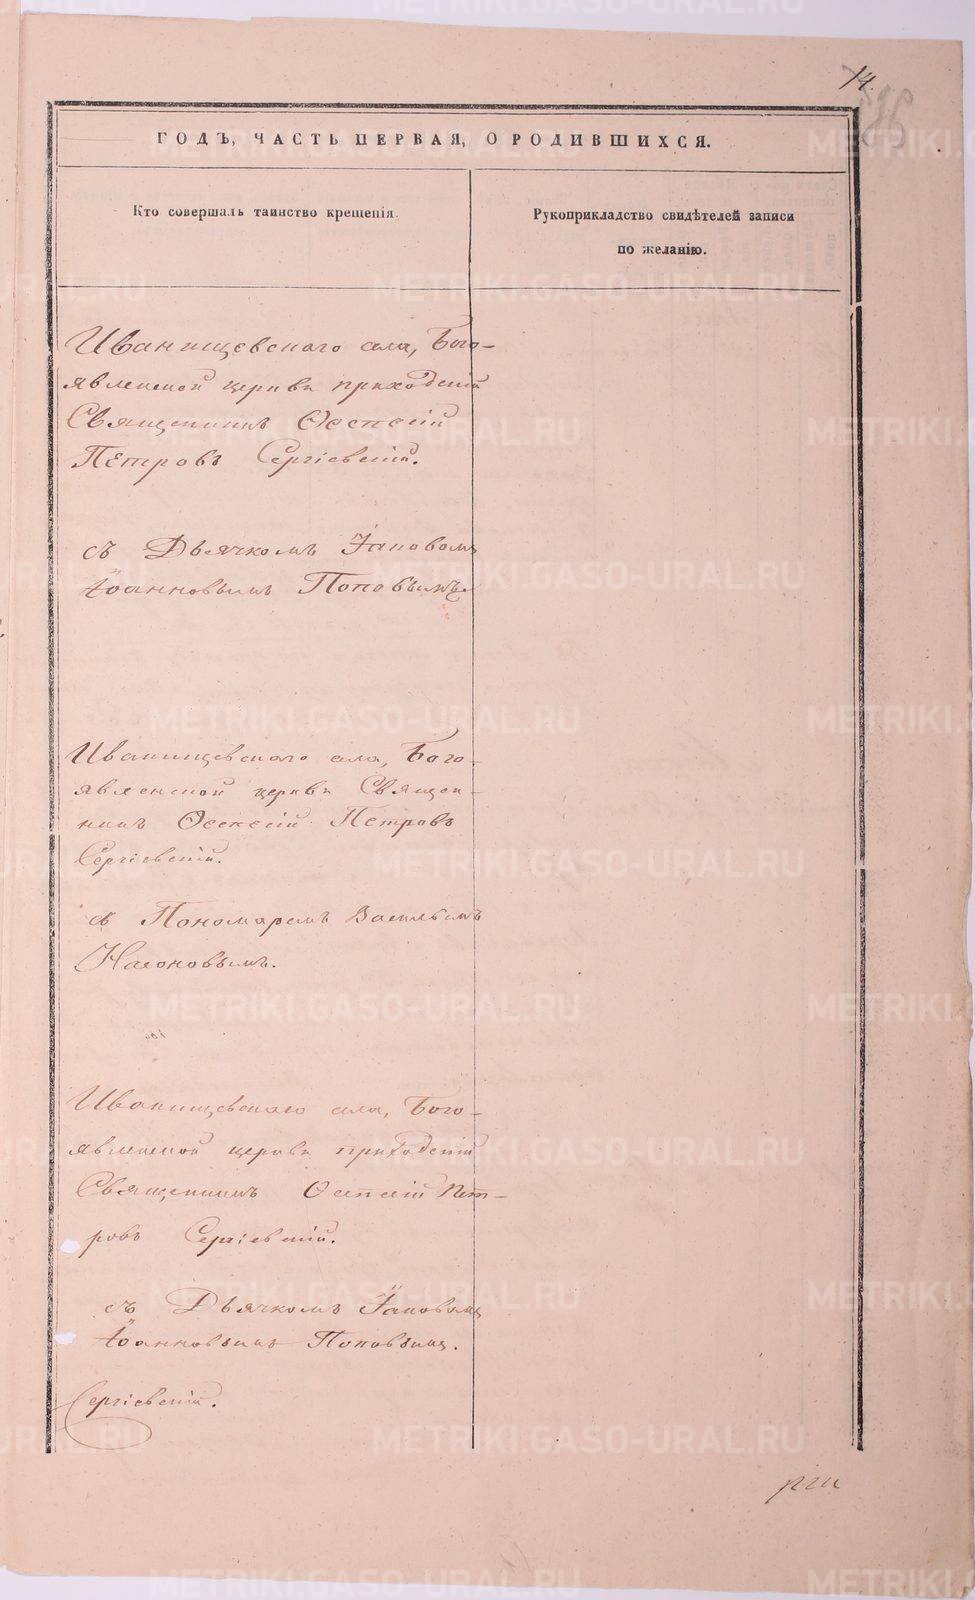 14.
ГОДЪ, ЧАСТЬ ПЕРВАЯ, О РОДИВШИХСЯ.
Кто совершалъ таинство крещенія.
Рукоприкладство свидѣтелей записи
по желанію.
Иванищевскаго села, Бого-
явленской церкви приходскій
Священникъ
Петровъ Сергіевскій.
съ Дьячкомъ Іаковомъ
Іоанновымъ Поповымъ.
Иванищевскаго села, Бого-
явленской церкви Священ-
никъ Петровъ
Сергіевскій.
съ Пономаремъ Васильемъ
Иванищевскаго села, Бого-
явленской церкви приходскій
Священникъ Пет-
ровъ Сергіевскій.
съ Дьячкомъ Іаковомъ
Іоанновымъ Поповымъ.
Сергіевскій.
METRIKI.GASO-URAL.RU